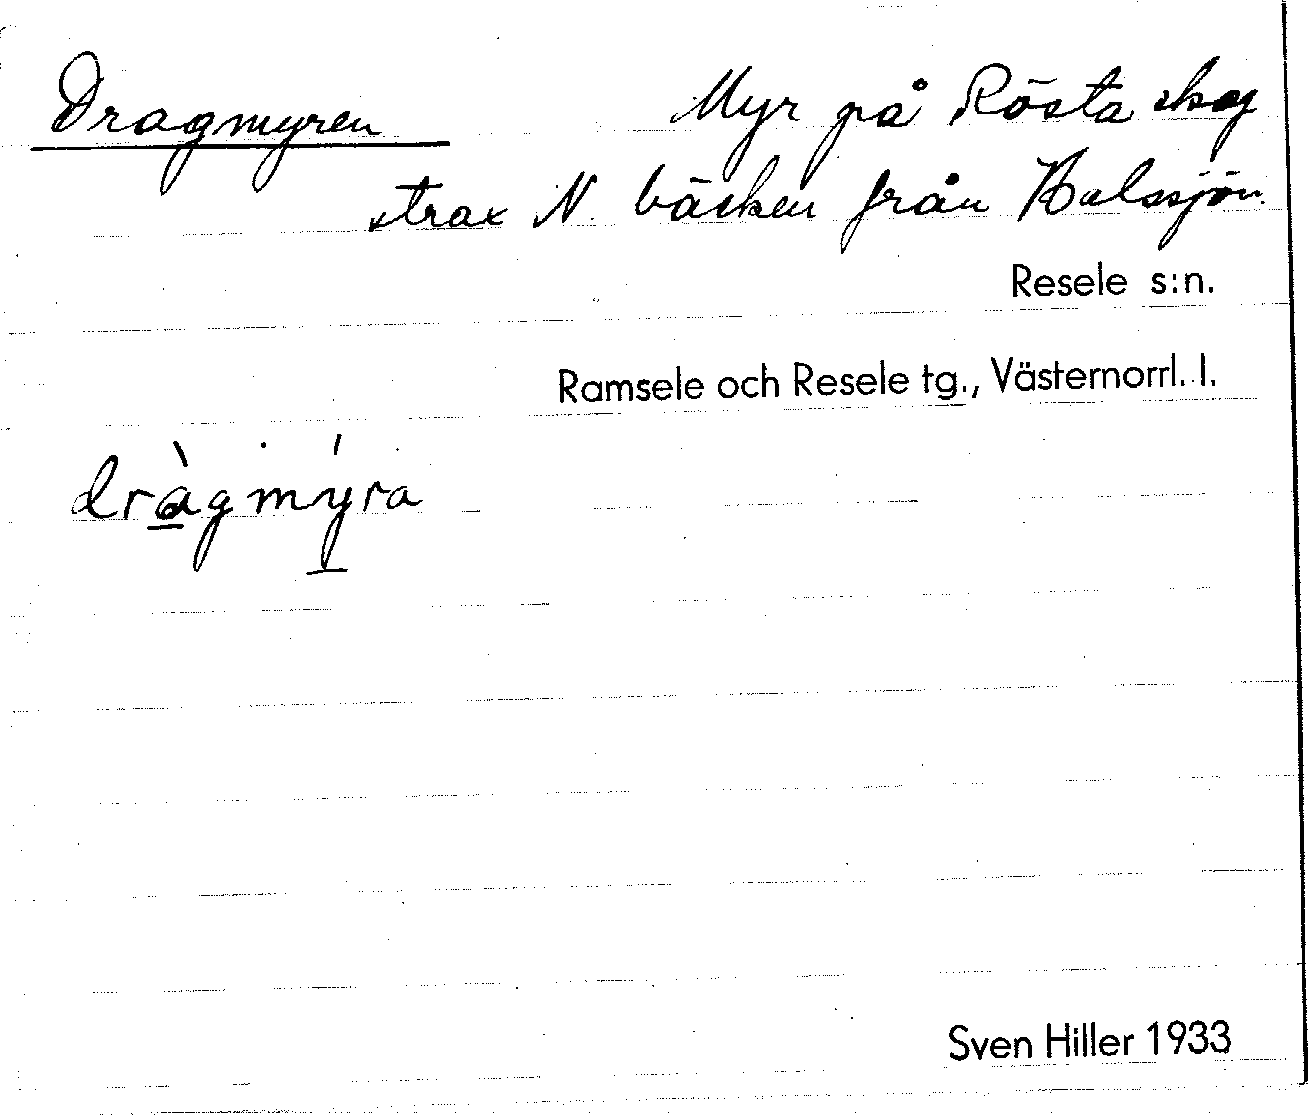 Dragmyren Myr på Rösta skog
strax N. bäcken från Halssjön.
Resele s:n.
Ramsele och Resele tg., Västernorrl. l.
dràgmýra
Sven Hiller 1933